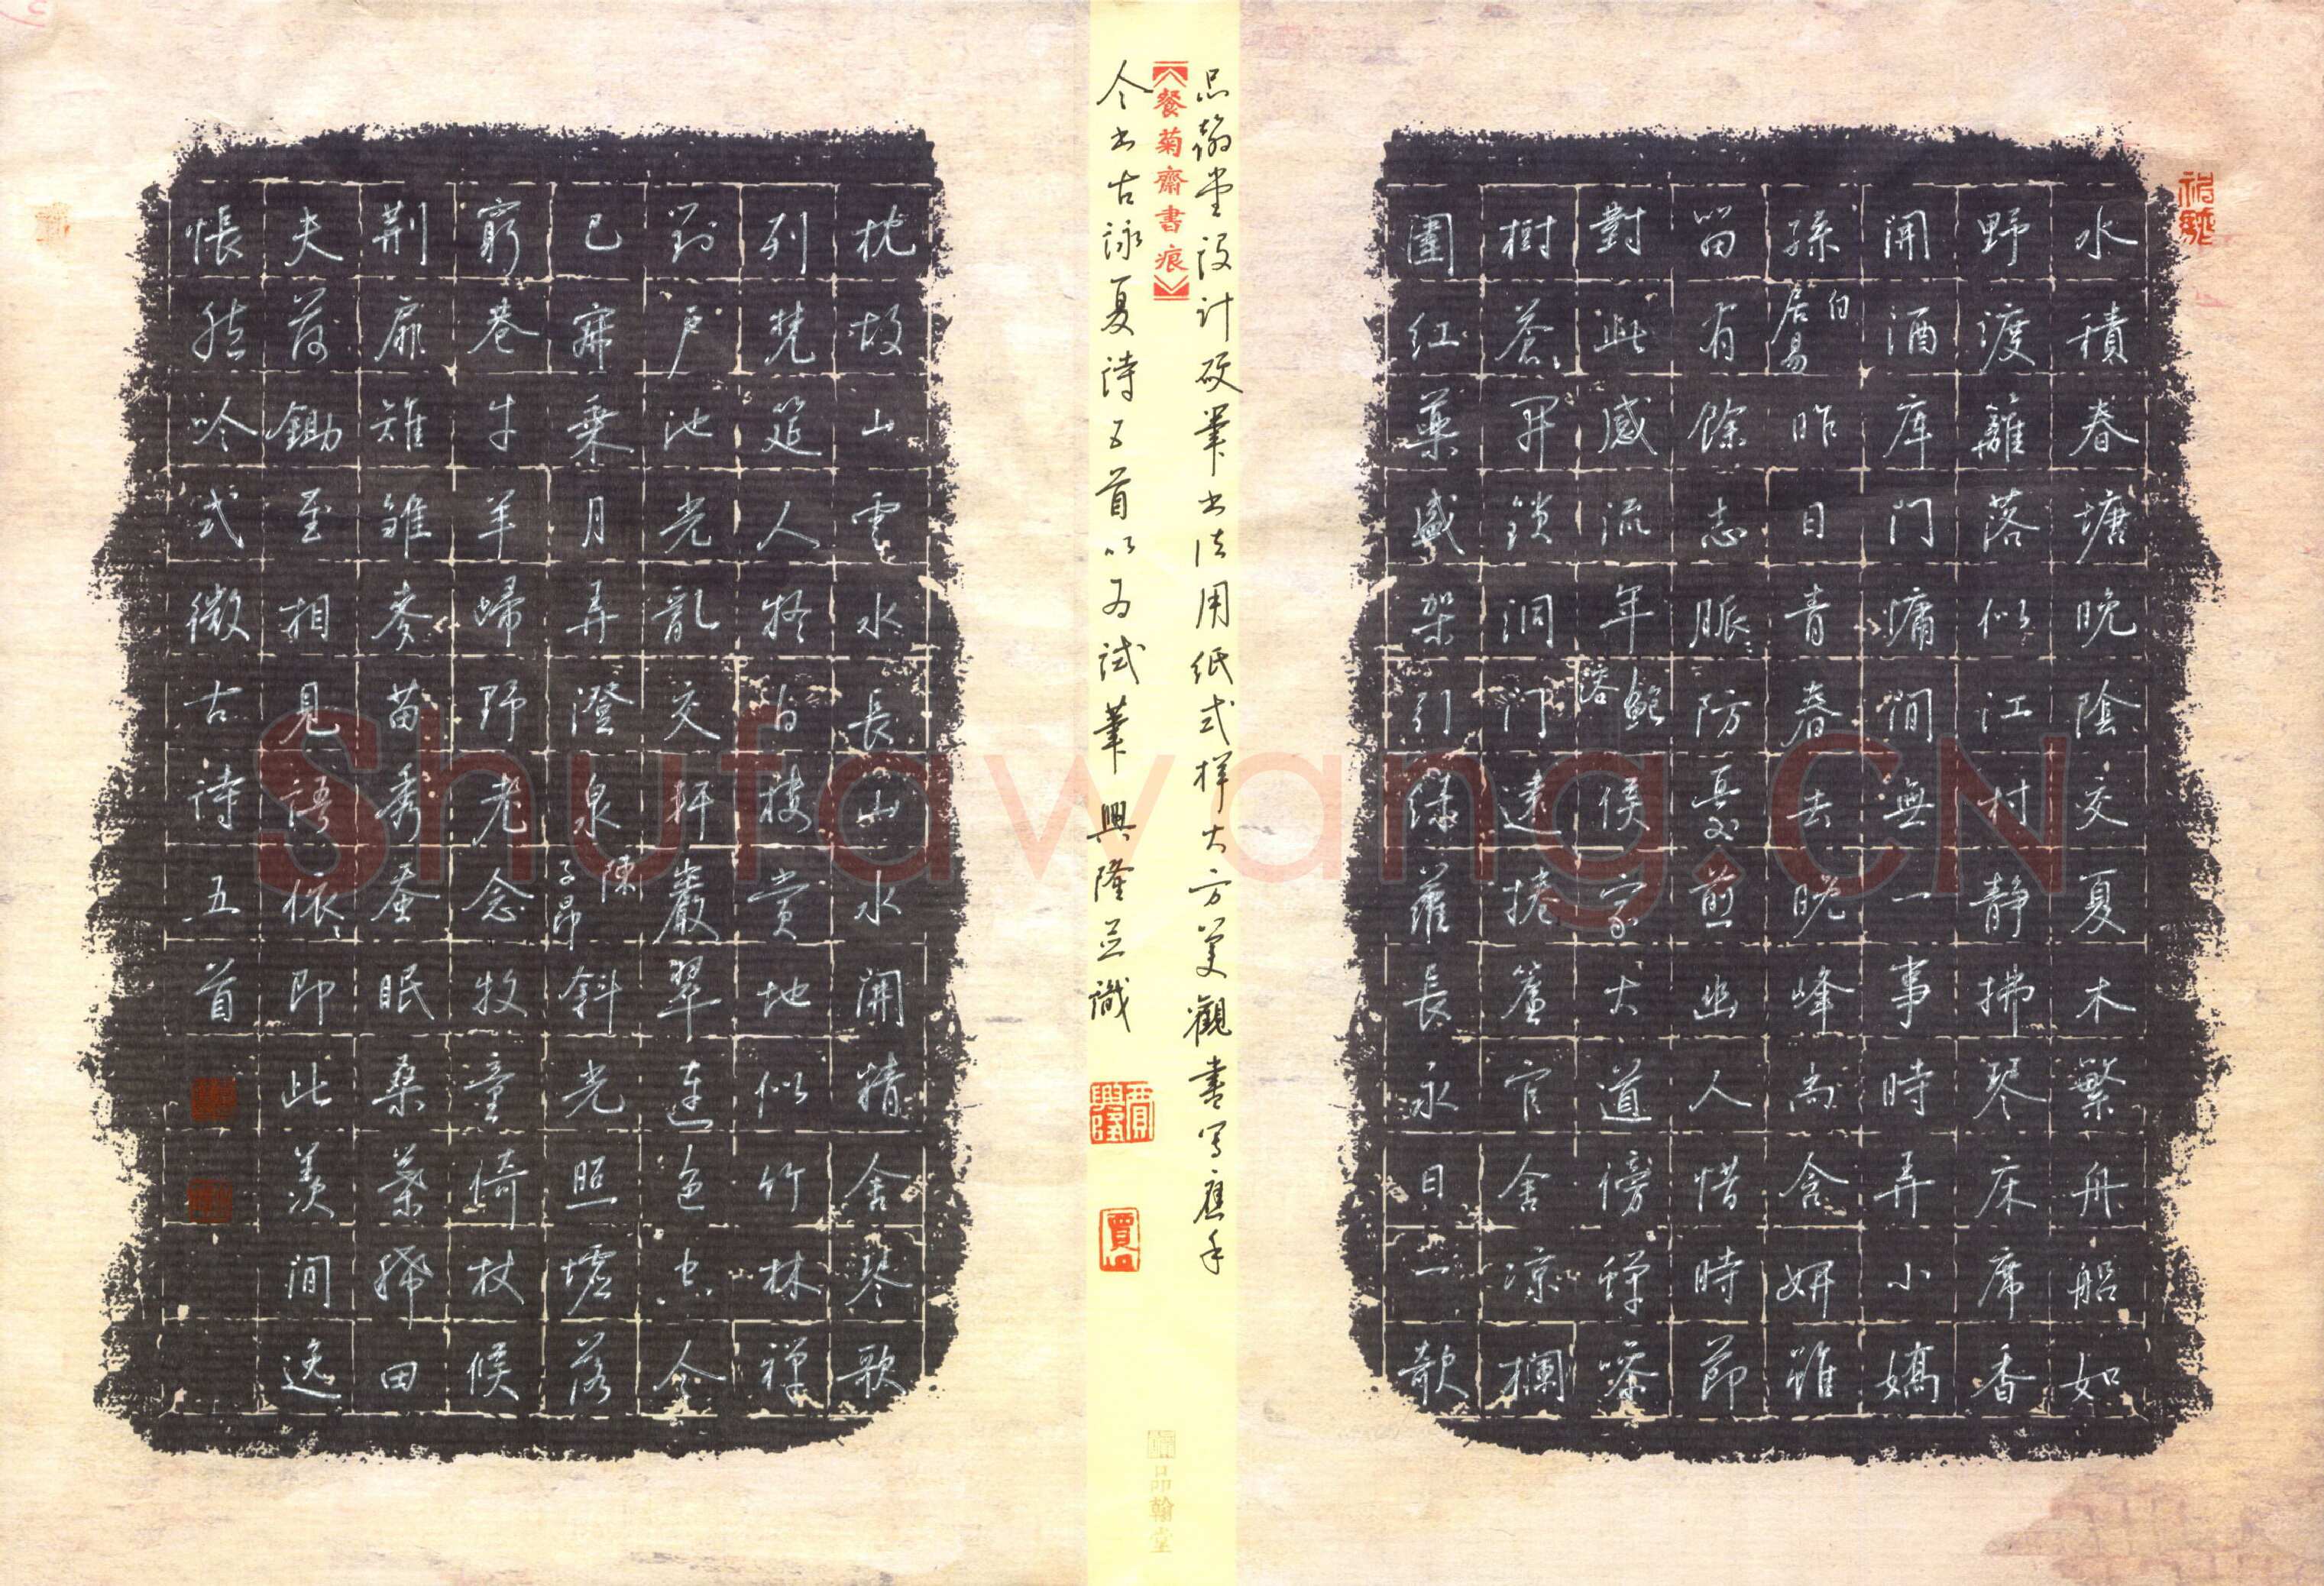 水積春塘晚陰交夏木繁舟船如
野渡籬落似江村静拂琴床席香
開酒库門慵閒無一事時弄小嬌
孫白居易昨日青春去晚峰尚含妍雖
留有餘態脈〻防憂煎幽人惜時節
對此感流年鮑溶侯家大道傍蟬噪
樹蒼〻開鎖洞門遠捲簾官舍涼欄
圍紅藥盛架引綠蘿長永日一欹
品翰堂設計硬筆书法用紙式样大方美觀書寫應手
【餐菊齋書痕】
今书古詠夏詩五首以为試筆興隆並識
賈興隆
品翰堂
枕故山雲水長山水開精舍琴歌
列梵筵人疑白樓賞地似竹林禪
對户池光亂交軒巖翠連色空今
已寂乘月弄澄泉陳子昂斜光照墟落
窮巷牛羊歸野老念牧童倚杖候
荆扉雉雊麥苗秀蠶眠桑葉稀田
夫荷鋤至相見語依〻即此羡閒逸
悵然吟式微古詩五首
Shufawang.CN